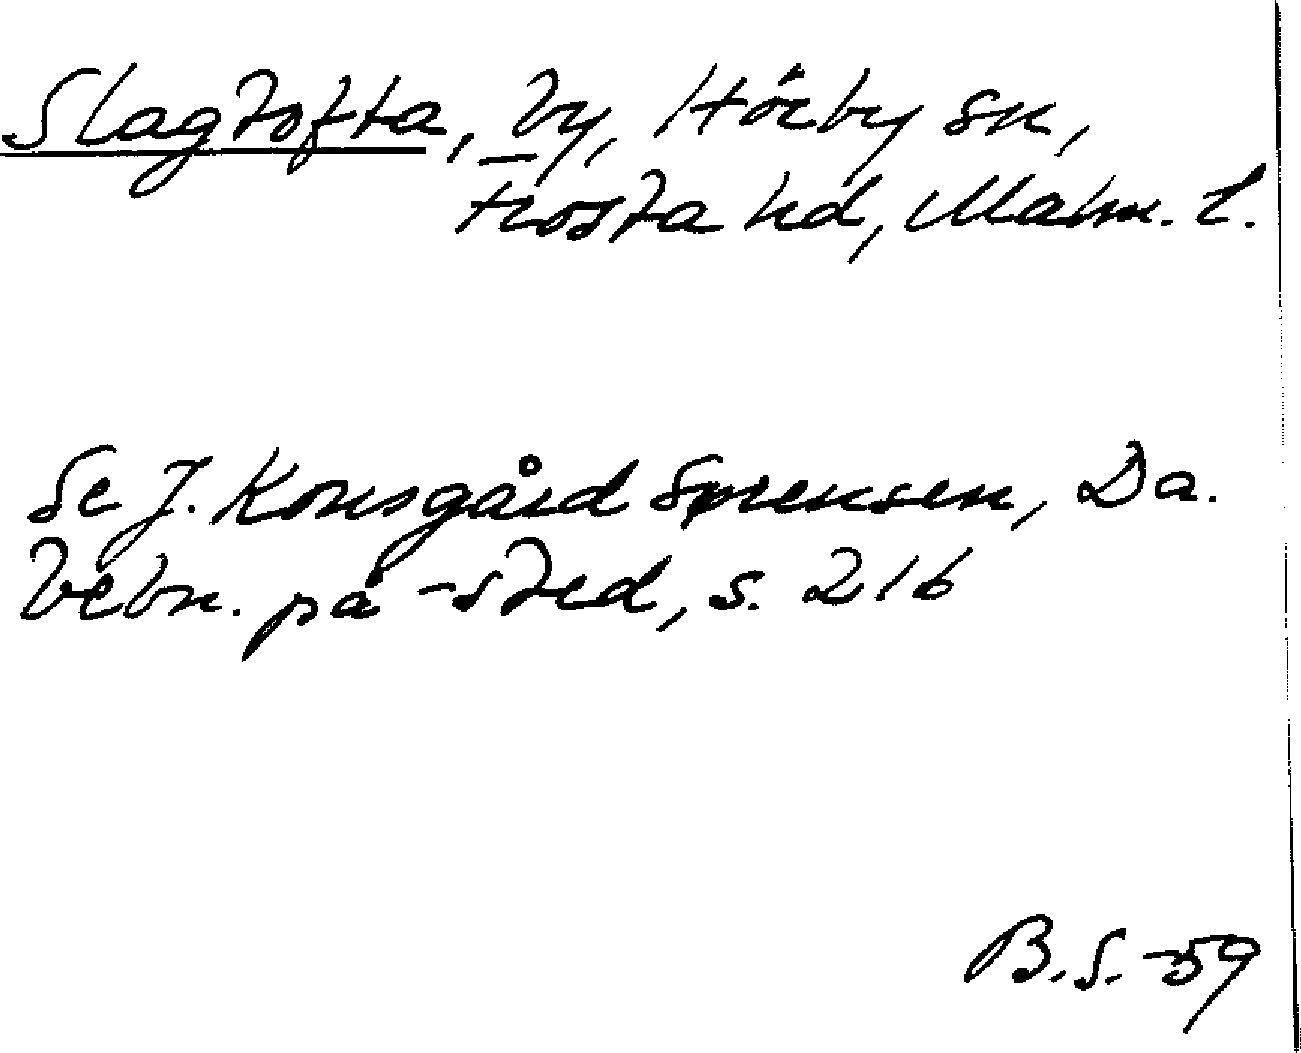 Slagtofta, by, Hörby sn,
Frosta hd, Malm. l.
Se J. Kousgård Sørensen, Da.
bebn. på -sted, s. 216
B.S. -59